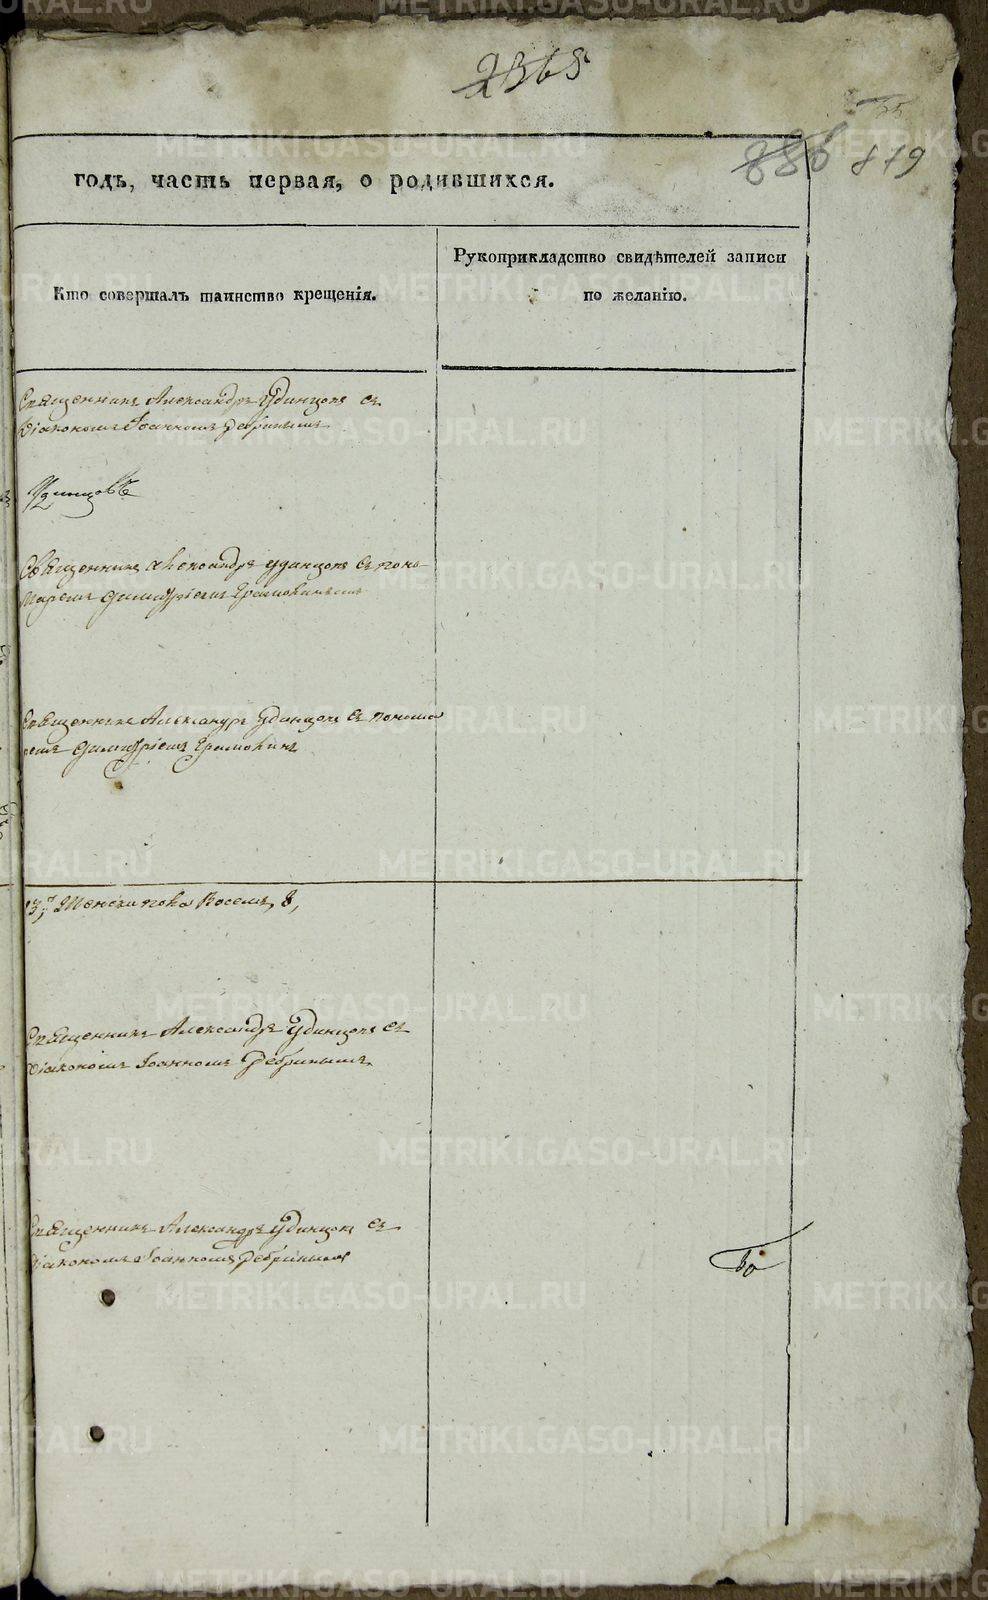 2365
886 819
годъ, часть первая, о родившихся.
Кто совершалъ таинство крещенія.
Рукоприкладство свидѣтелей записи
по желанію.
Священникъ Александръ Удинцовъ съ
Діакономъ Іоанномъ Ребринымъ
Удинцовъ
Священникъ Александръ Удинцовъ съ поно-
маремъ Димитріемъ
Священникъ Александръ Удинцовъ съ понома
ремъ Димитріемъ
Женска пола восемь, 8,
Священникъ Александръ Удинцовъ съ
Діакономъ Іоанномъ Ребринымъ
Священникъ Александръ Удинцовъ съ
Діакономъ Іоанномъ Ребринымъ
METRIKI.GASO-URAL.RU